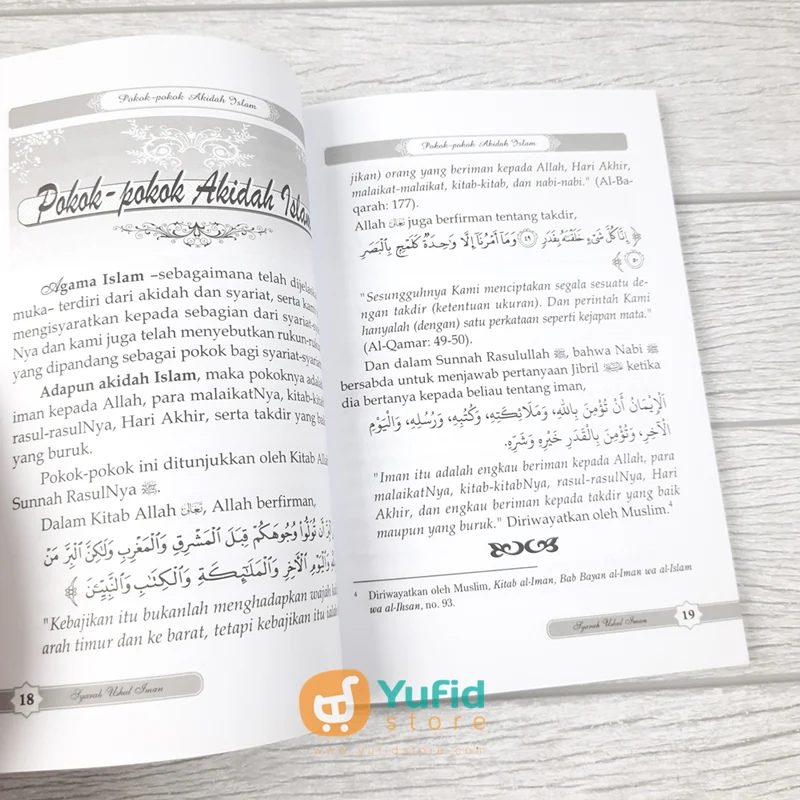 Pokok-pokok Akidah Islam
Pokok-pokok Akidah Islam
Agama Islam –sebagaimana telah
muka– terdiri dari akidah dan syariat, serta
mengisyaratkan kepada sebagian dari
Nya dan kami juga telah menyebutkan
yang dipandang sebagai pokok bagi
Adapun akidah Islam, maka pokoknya
iman kepada Allah, para malaikatNya,
rasul-rasulNya, Hari Akhir, serta takdir yang
yang buruk.
Pokok-pokok ini ditunjukkan oleh Kitab
Sunnah RasulNya ﷺ.
Dalam Kitab Allah تعالى, Allah berfirman,
أَنْ تُوَلُّوا وُجُوهَكُمْ قِبَلَ الْمَشْرِقِ وَالْمَغْرِبِ وَلَٰكِنَّ الْبِرَّ مَنْ
وَالْيَوْمِ الْآخِرِ وَالْمَلَائِكَةِ وَالْكِتَابِ وَالنَّبِيِّينَ ﴾
"Kebajikan itu bukanlah menghadapkan wajah
arah timur dan ke barat, tetapi kebajikan itu
18
Syarah Ushul Iman
Pokok-pokok Akidah Islam
jikan) orang yang beriman kepada Allah, Hari Akhir,
malaikat-malaikat, kitab-kitab, dan nabi-nabi." (Al-Ba-
qarah: 177).
Allah تعالى juga berfirman tentang takdir,
﴿ إِنَّا كُلَّ شَيْءٍ خَلَقْنَاهُ بِقَدَرٍ ٤٩ وَمَا أَمْرُنَا إِلَّا وَاحِدَةٌ كَلَمْحٍ بِالْبَصَرِ
٥٠ ﴾
"Sesungguhnya Kami menciptakan segala sesuatu de-
ngan takdir (ketentuan ukuran). Dan perintah Kami
hanyalah (dengan) satu perkataan seperti kejapan mata."
(Al-Qamar: 49-50).
Dan dalam Sunnah Rasulullah ﷺ, bahwa Nabi ﷺ
bersabda untuk menjawab pertanyaan Jibril ketika
dia bertanya kepada beliau tentang iman,
اَلْإِيْمَانُ أَنْ تُؤْمِنَ بِاللهِ، وَمَلَائِكَتِهِ، وَكُتُبِهِ، وَرُسُلِهِ، وَالْيَوْمِ
الْآخِرِ، وَتُؤْمِنَ بِالْقَدَرِ خَيْرِهِ وَشَرِّهِ.
"Iman itu adalah engkau beriman kepada Allah, para
malaikatNya, kitab-kitabNya, rasul-rasulNya, Hari
Akhir, dan engkau beriman kepada takdir yang baik
maupun yang buruk." Diriwayatkan oleh Muslim.⁴
⁴ Diriwayatkan oleh Muslim, Kitab al-Iman, Bab Bayan al-Iman wa al-Islam
wa al-Ihsan, no. 93.
Syarah Ushul Iman
19
Yufid
store
www.yufidstore.com